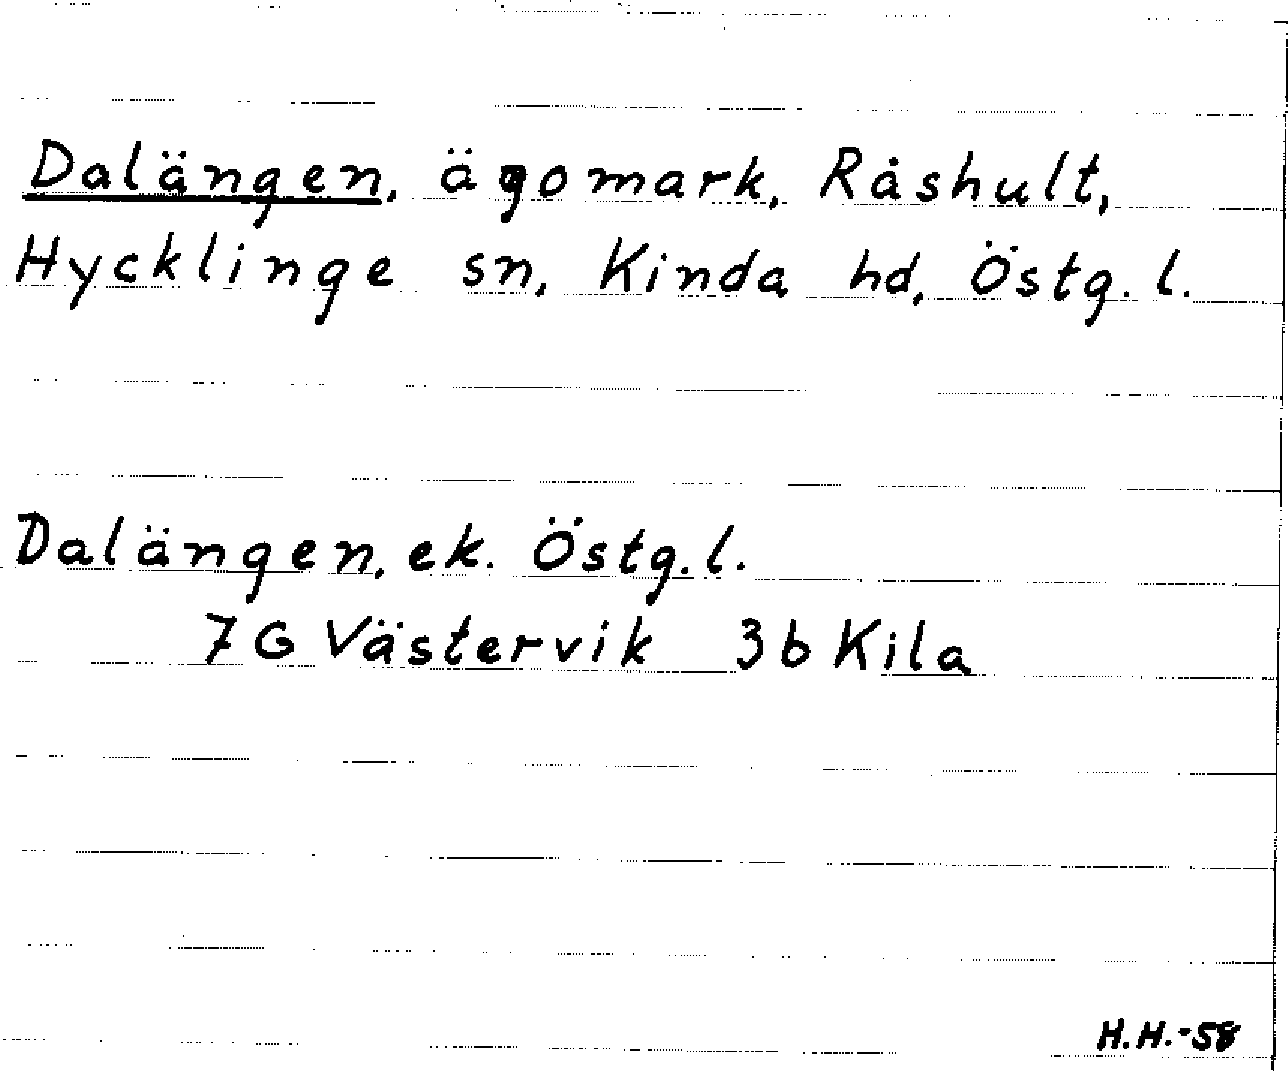 Dalängen, ägomark, Råshult,
Hycklinge sn, Kinda hd, Östg. l.
Dalängen, ek. Östg. l.
7 G Västervik 3b Kila
H.H.-58